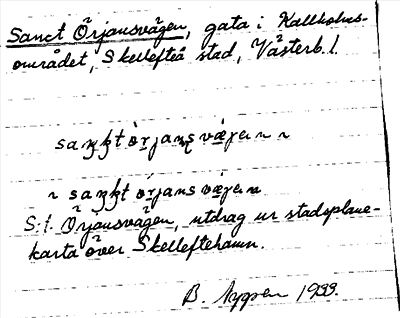 Sanct Örjansvägen, gata i Kallholms-
området, Skellefteå stad, Västerb. l.
saŋkt örjansvägen
saŋkt örjansvägen
S:t. Örjansvägen, utdrag ur stadsplane-
karta över Skelleftehamn.
B. 1933.